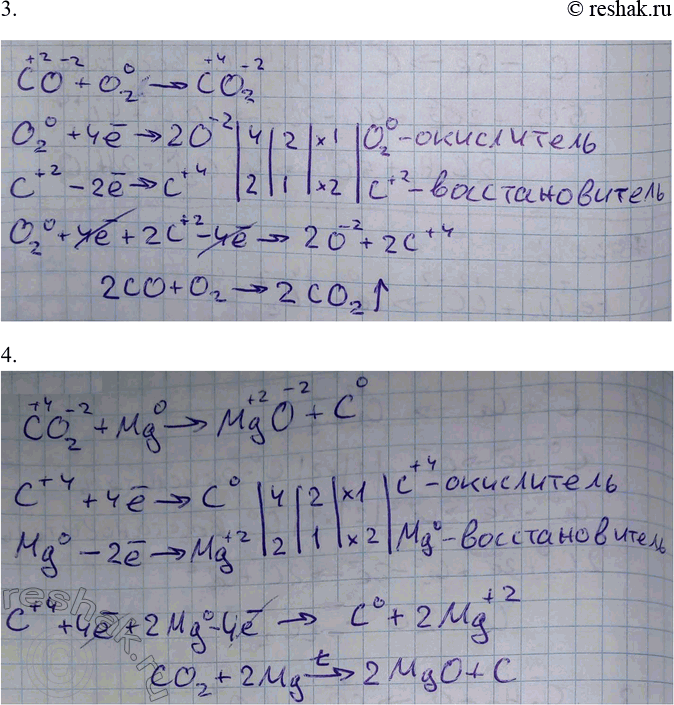 3.
© reshak.ru
C⁺²O⁻² + O₂⁰ → C⁺⁴O₂⁻²
O₂⁰ + 4ē → 2O⁻² | 4 | 2 | ×1 | O₂⁰ - окислитель
C⁺² - 2ē → C⁺⁴ | 2 | 1 | ×2 | C⁺² - восстановитель
O₂⁰ + 4ē + 2C⁺² - 4ē → 2O⁻² + 2C⁺⁴
2CO + O₂ → 2CO₂↑
4.
C⁺⁴O₂⁻² + Mg⁰ → Mg⁺²O⁻² + C⁰
C⁺⁴ + 4ē → C⁰ | 4 | 2 | ×1 | C⁺⁴ - окислитель
Mg⁰ - 2ē → Mg⁺² | 2 | 1 | ×2 | Mg⁰ - восстановитель
C⁺⁴ + 4ē + 2Mg⁰ - 4ē → C⁰ + 2Mg⁺²
CO₂ + 2Mg →ᵗ 2MgO + C
reshak.ru